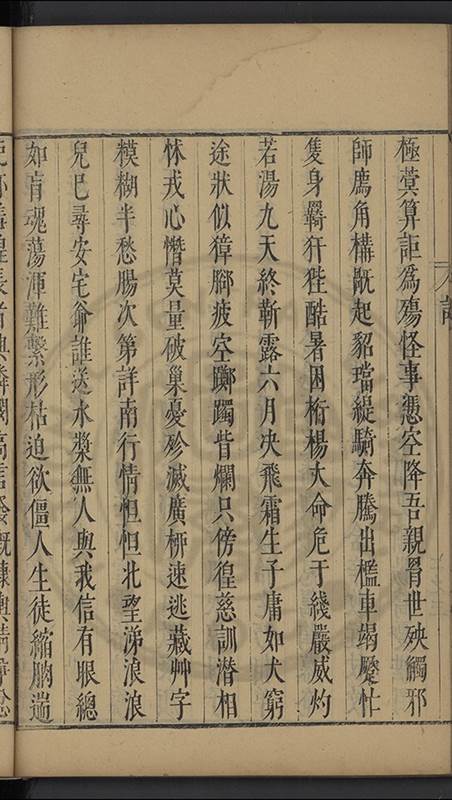 極蓂算詎為殤怪事憑空降吾親胥世殃觸邪
師廌角構釁起貂璫緹騎奔騰出檻車竭蹷忙
隻身羈犴狴酷暑困桁楊大命危于綫嚴威灼
若湯九天終靳露六月决飛霜生子庸如犬窮
途狀似獐腳疲空躑躅眥爛只傍徨慈訓潛相
怵戎心憯莫量破巢憂殄滅廣柳速逃藏艸字
模糊半愁腸次第詳南行情怛怛北望涕浪浪
兒已尋安宅爺誰送水漿無人與我信有眼總
如盲魂蕩渾難繫形枯迫欲僵人生徒縮朒遄